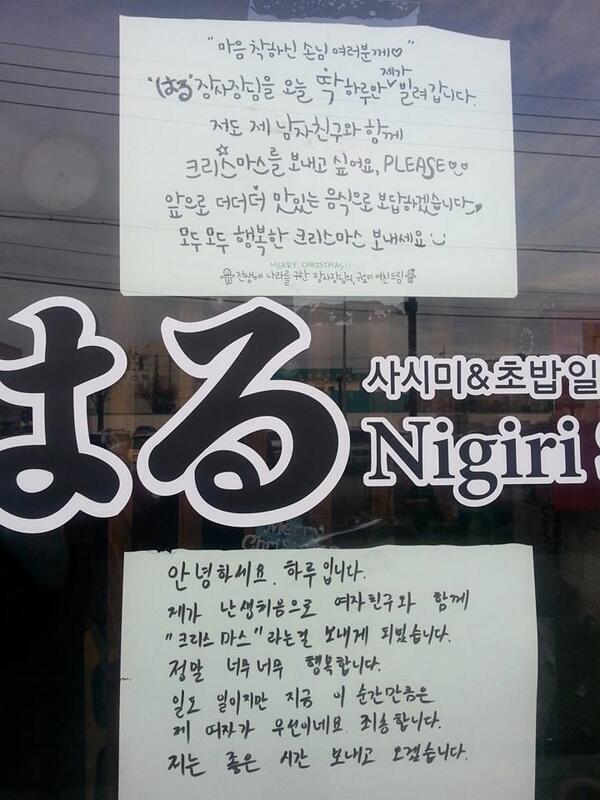 "마음 착하신 손님 여러분께♡"
'はる' 장사장님을 오늘 딱 하루만 제가 빌려갑니다.
저도 제 남자친구와 함께
크리스마스를 보내고 싶어요, PLEASE
앞으로 더더더 맛있는 음식으로 보답하겠습니다
모두모두 행복한 크리스마스 보내세요
MERRY CHRISTMAS!!
전생에 나라를 구한 장사장님의, 귀요미 여친 드림
はる
사시미&초밥 일
Nigiri
Merry
안녕하세요. 하루입니다.
제가 난생처음으로 여자친구와 함께
"크리스마스"라는걸 보내게 되었습니다.
정말 너무너무 행복합니다.
일도 일이지만 지금 이 순간만큼은
제 여자가 우선이네요. 죄송합니다.
저는 좋은 시간 보내고 오겠습니다.